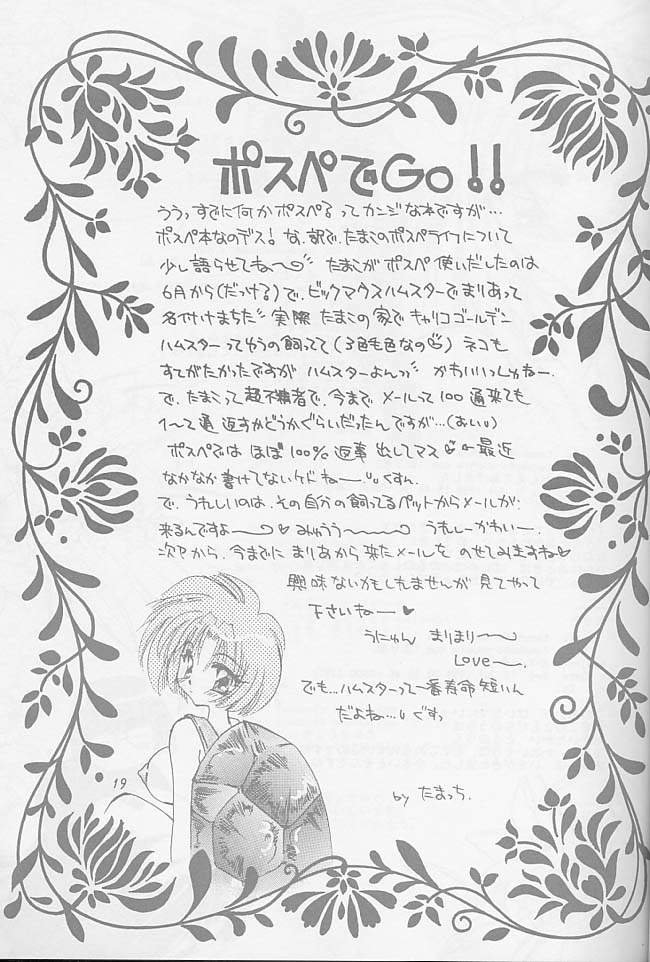 ポスペでGo!!
ううっすでに何かポスペる?ってカンジな本ですが…
ポスペ本なのデス! な、部で、たまこのポスペライフについて
少し語らせてね〜 たまこがポスペ使いだしたのは
6月から(だっける)で、ビックマウスハムスターでまりあって
名付けまちた 実際たまこの家でキャリコゴールデン
ハムスターってゆうの飼ってて(3色毛色なの)ネコも
すてがたかったですがハムスターよんっ かわいいっしゅねー.
で、たまこって超不精者で、今までメールって100通来ても
1〜2通返すかどうかぐらいだったんですが…(おい)
ポスペではほぼ100%返事出してマス ←最近
なかなか書けてないケドねー くすん.
で、うれしいのは、その自分の飼ってるペットからメールが
来るんですよー みゅうう〜 うれしーかわいー.
次Pから、今までにまりあから来たメールをのせてみますね♡
興味ないかもしれませんが見てやって
下さいねー♥
うにゅん まりまり〜
Love〜.
でも…ハムスターって一番寿命短いん
だよね… ぐすっ
by たまっち.
19